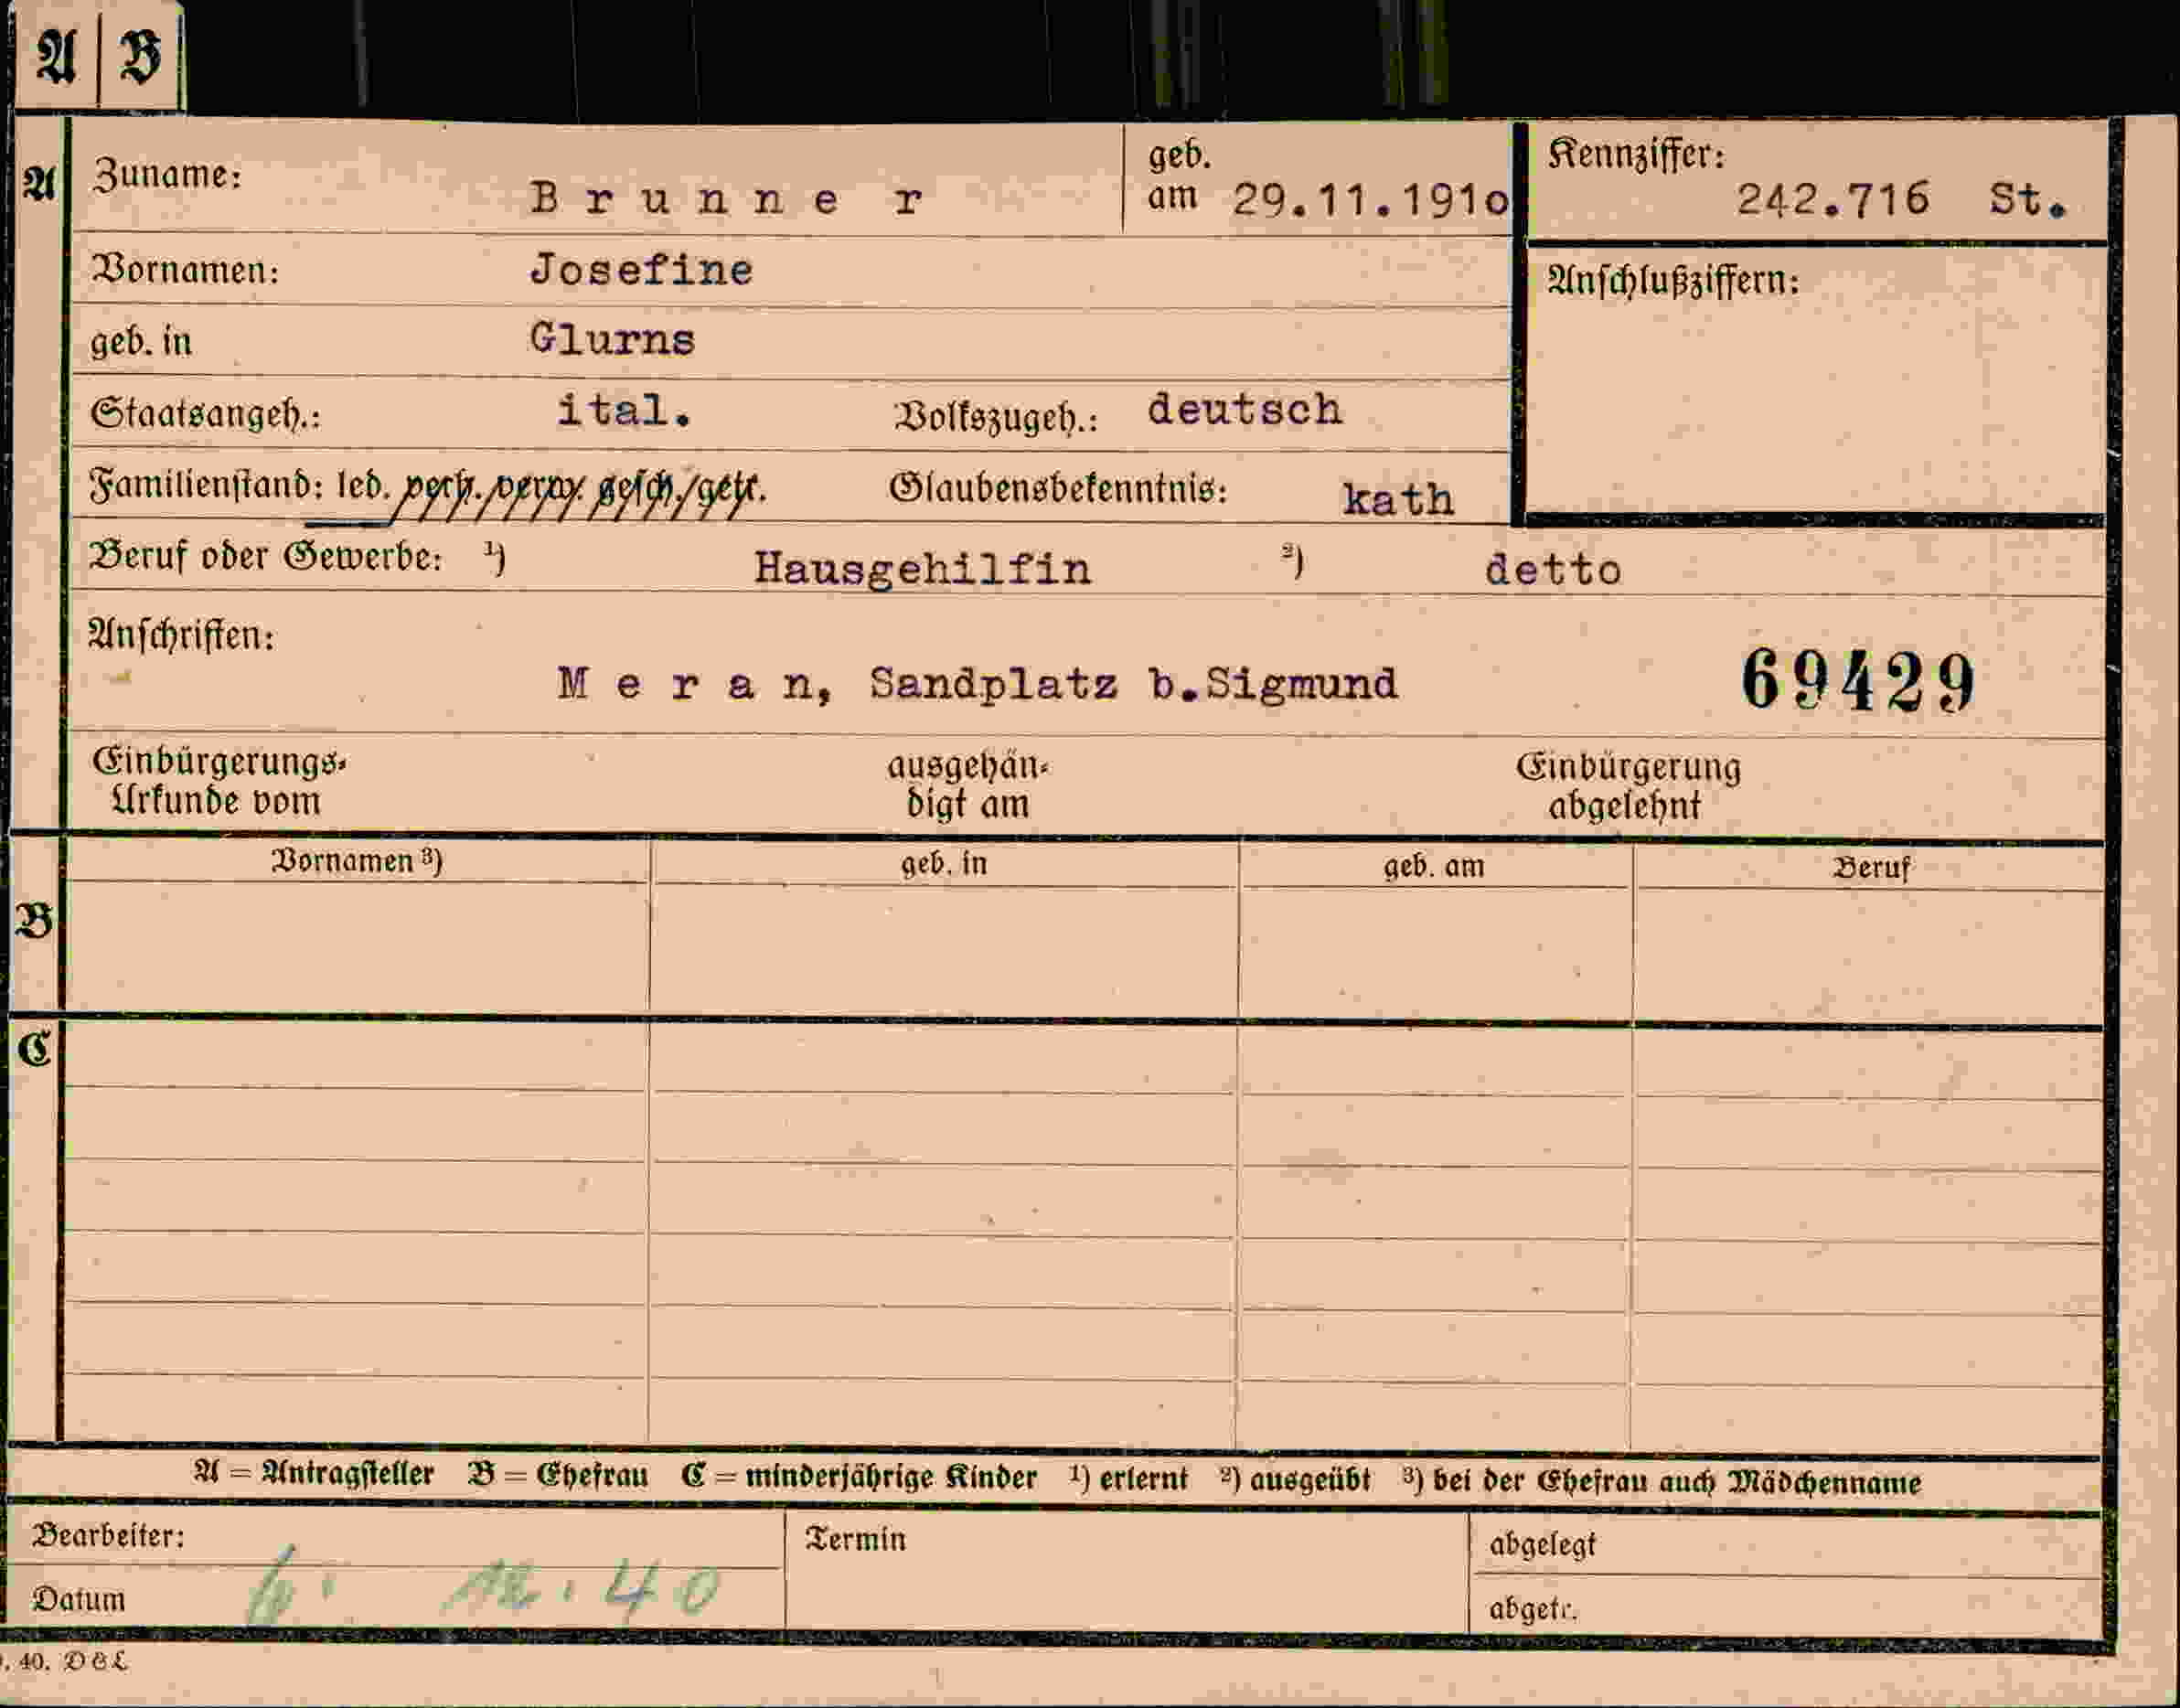 A B
A Zuname: Brunner geb. am 29.11.191o Kennziffer: 242.716 St.
Vornamen: Josefine Anschlußziffern:
geb. in Glurns
Staatsangeh.: ital. Volkszugeh.: deutsch
Familienstand: led. verh. verw. gesch./getr. Glaubensbekenntnis: kath
Beruf oder Gewerbe: ¹) Hausgehilfin ²) detto
Anschriften:
Meran, Sandplatz b.Sigmund 69429
Einbürgerungs- ausgehän- Einbürgerung
Urkunde vom digt am abgelehnt
Vornamen ³) geb. in geb. am Beruf
B
C
A = Antragsteller B = Ehefrau C = minderjährige Kinder ¹) erlernt ²) ausgeübt ³) bei der Ehefrau auch Mädchenname
Bearbeiter: Termin abgelegt
Datum 40 abgetr.
. 40. DEL